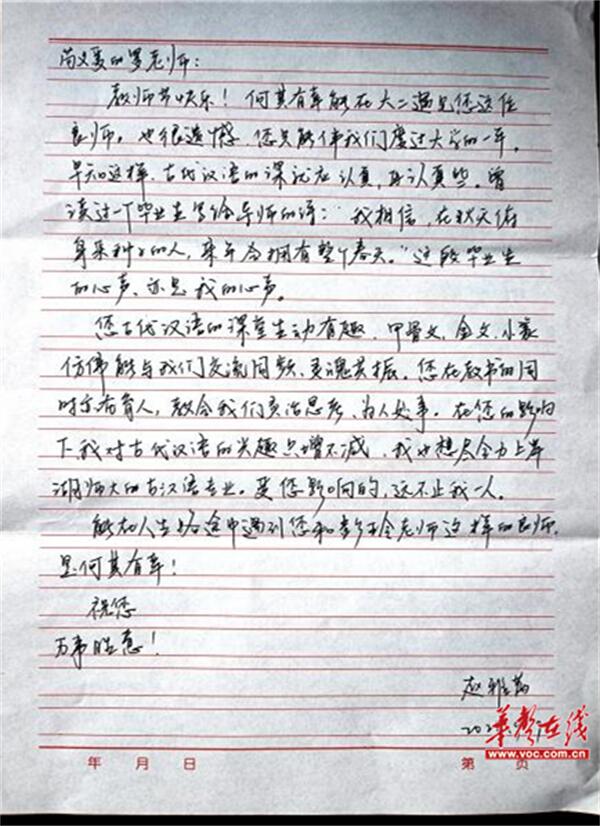 尚文爱的罗老师：
教师节快乐！何其有幸能在大二遇见您这位
良师。也很遗憾，您只能伴我们度过大学的一年。
早知这样，古代汉语的课就应认真，再认真些。曾
读过一个毕业生写给导师的话：“我相信，在秋天俯
身采种子的人，来年会拥有整个春天。”这段毕业生
的心声，亦是我的心声。
您古代汉语的课堂生动有趣，甲骨文、金文、小篆
仿佛能与我们交流同频、灵魂共振。您在教书的同
时亦有育人，教会我们灵活思考、为人处事。在您的影响
下，我对古代汉语的兴趣只增不减，我也想尽全力上岸
湖师大的古汉语专业。受您影响的，远不止我一人。
能在人生路途中遇到您和老师这样的良师，
是何其有幸！
祝您
万事胜意！
赵雅
202
华声在线
www.voc.com.cn
年 月 日 第 页